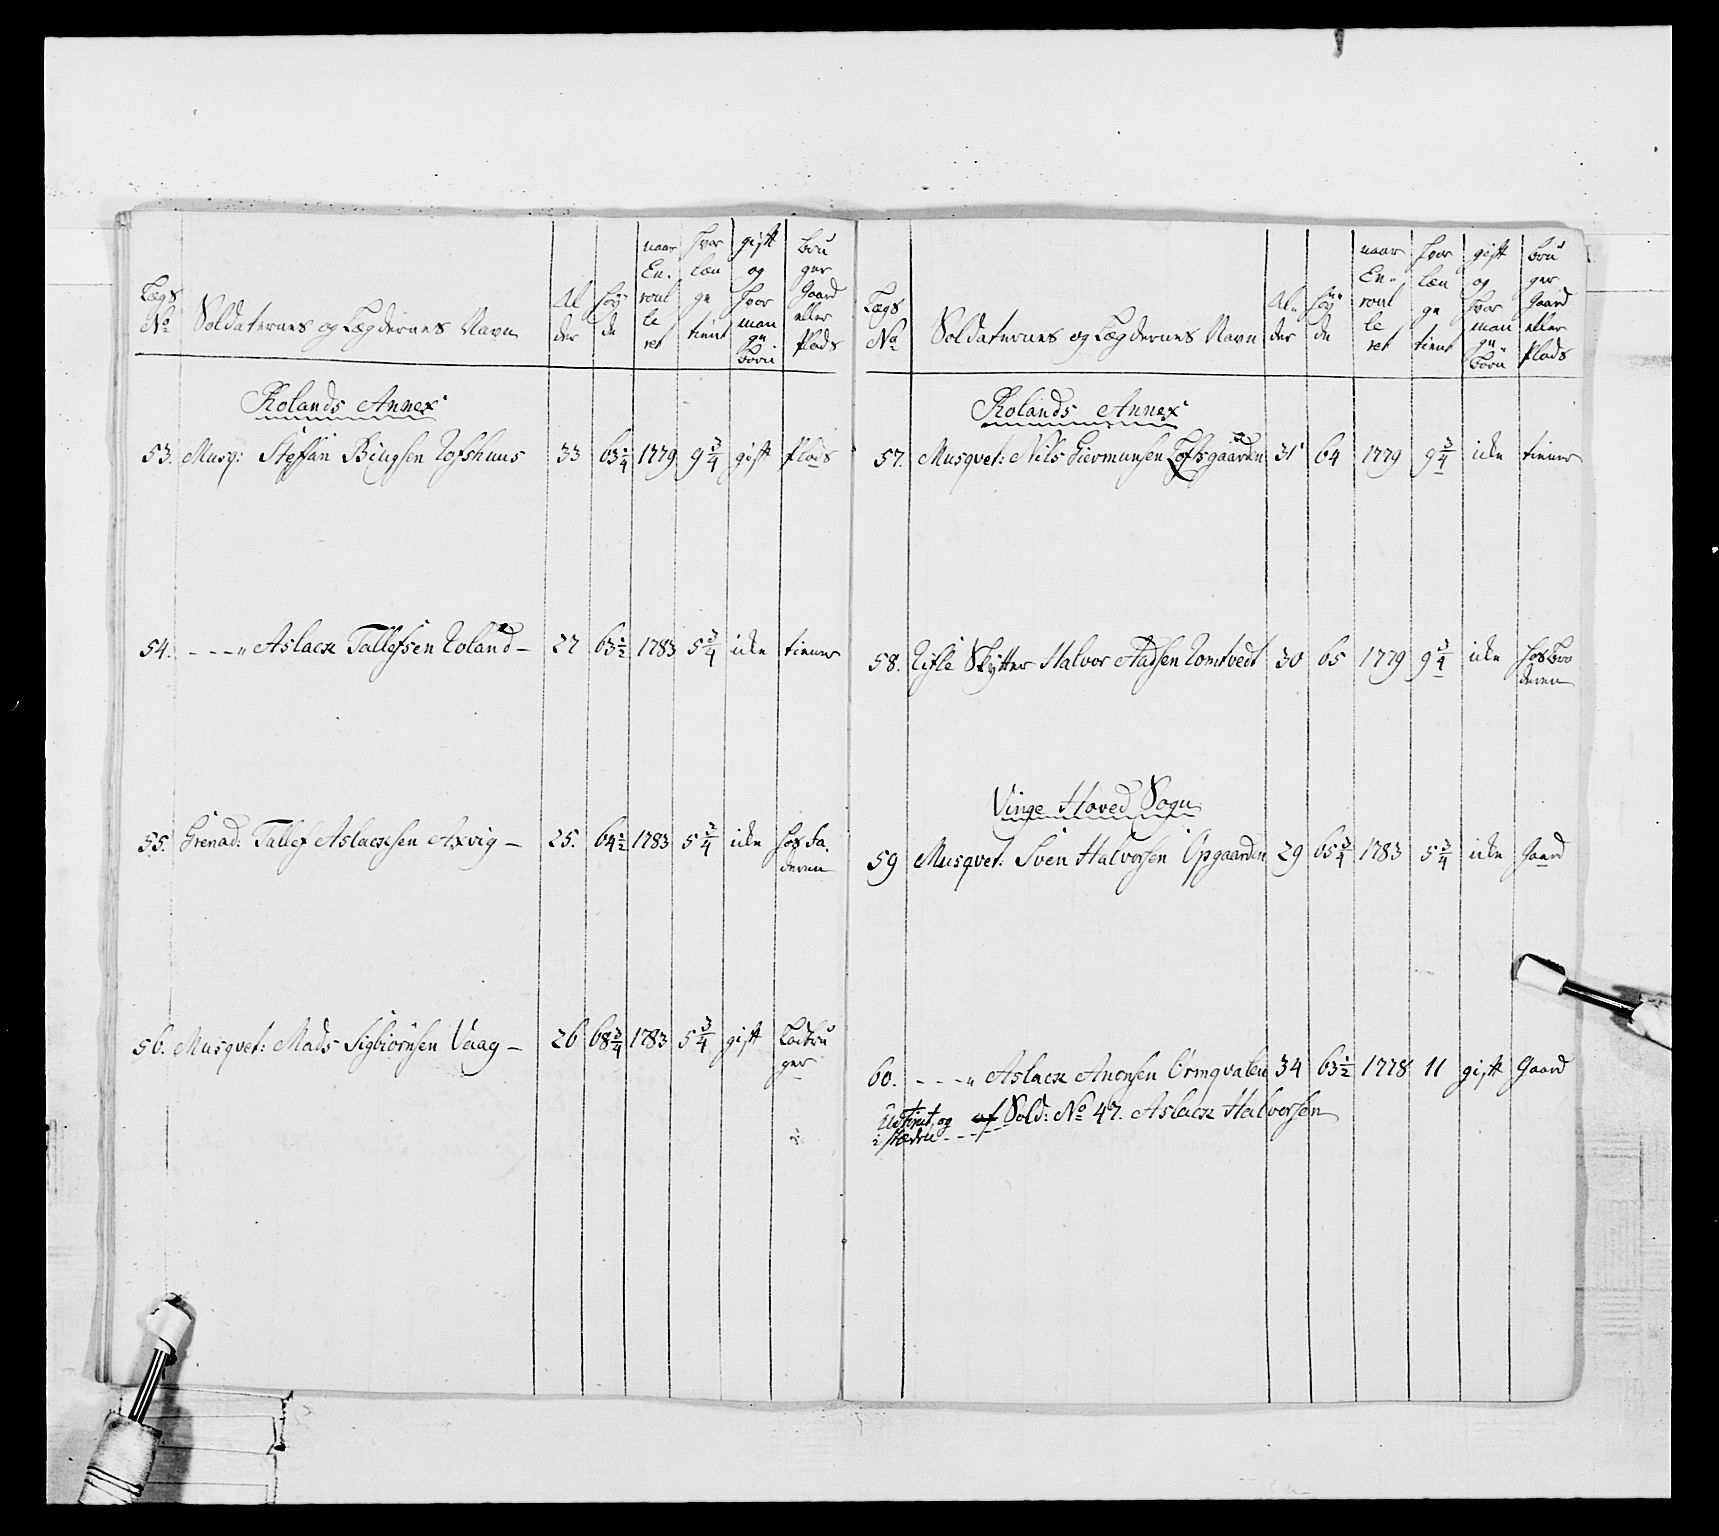 Lægs No Soldaternes og Lægdernes Navn Al der Høy de naar En- roul le ret Hvor læn ge tient gift og Hvor man ge Børn bru ger Gaard eller Plads
Rolands Annex
53. Musq: Steffan Biugsen Rofshuus 33 63 1/4 1779 9 3/4 gift Plads
54. - - - „ Aslack Tallefsen Roland - 27 63 1/2 1783 5 3/4 icke tiener
55. Grenad: Tallef Aslacksen Axvig - 25. 64 1/2 1783 5 3/4 icke hos Fa-
deren
56. Musqvet: Mads Sigbiørnsen Vaag - 26 68 3/4 1783 5 3/4 gift Lodbru
ger
Lægs No Soldaternes og Lægdernes Navn Al- der Høy de naar En- roul le ret Hvor læn ge tient gift og Hvor man ge Børn bru ger Gaard eller Plads
Rolands Annex
57. Musqvet: Nils Giermunsen Loftsgaarden 31 64 1779 9 3/4 icke tiener
58. Rifle Skytter Halvor Aadsen Romtvedt 30 65 1779 9 3/4 icke hos Bro
deren
Vinge Hoved Sogn
59 Musqvet: Sven Halvorsen Opgaarden 29 65 3/4 1783 5 3/4 icke Gaard
60. - - - „ Aslack Anonsen Ormqvalen 34 63 1/2 1778 11 gift Gaard
Udtient, og af Sold: No 47. Aslack Halvorsen
i stæden - - -